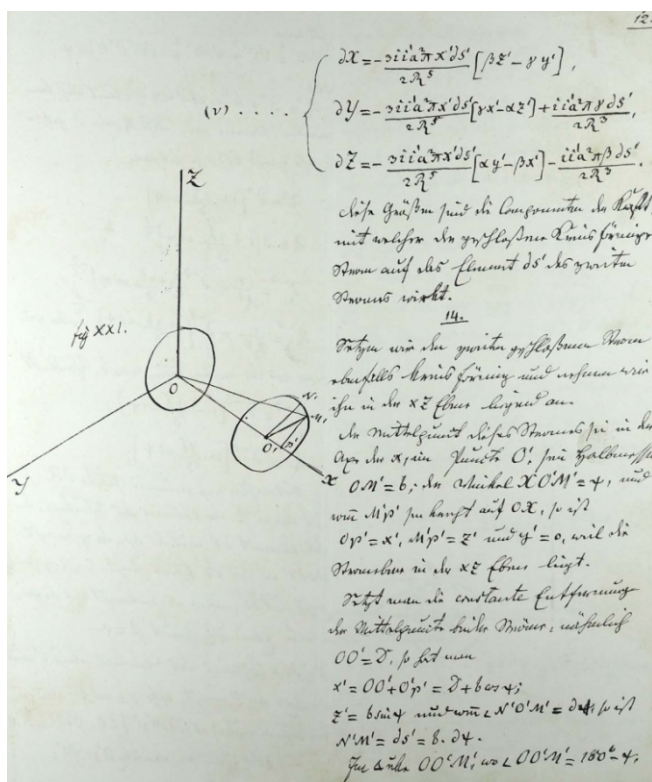 12.
∂X = -3ii'a²πx'ds'/2R⁵ [βz' - γy'],
(v) . . . . ∂Y = -3ii'a²πx'ds'/2R⁵ [γx' - αz'] + ii'a²πγds'/2R³,
∂Z = -3ii'a²πx'ds'/2R⁵ [αy' - βx'] - ii'a²πβds'/2R³.
diese Größen sind die Componenten der Kraft,
mit welcher der geschloßene Kreisförmige
Strom auf das Element ds' des zweiten
Stromes wirkt.
14.
Setzen wir den zweiten geschloßenen Strom
ebenfalls Kreisförmig und nehmen wir
ihn in der xz Ebene liegend an.
der Mittelpunct dieses Stromes sei in der
Axe der x, im Puncte O', sein Halbmesser
O'M' = b; der Winkel XO'M' = ψ, und
wenn M'p' senkrecht auf OX, so ist
Op' = x', M'p' = z' und y' = 0, weil die
Stromebene in der xz Ebene liegt.
Setzt man die constante Entfernung
der Mittelpuncte beider Ströme, nähmlich
OO' = D, so hat man
x' = OO' + O'p' = D + b cos ψ;
z' = b sin ψ und wenn ∠ N'O'M' = dψ, so ist
N'M' = ds' = b. dψ.
Im Δ OO'M', wo ∠ OO'M' = 180° - ψ,
Z
fig XXI.
O
N'
M'
O'
p'
Y
X